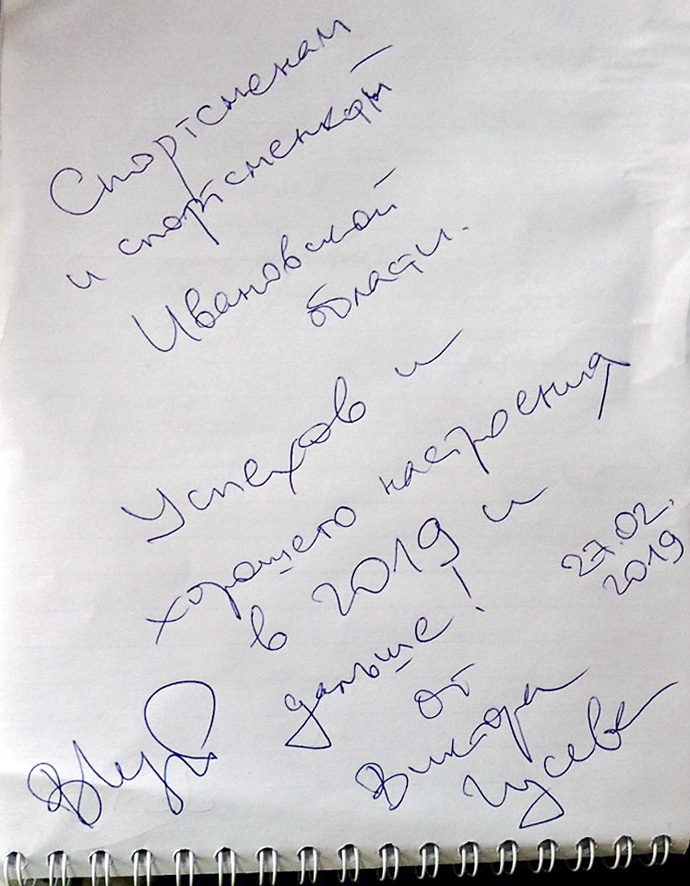 Спортсменам
и спортсменкам
Ивановской
области.
Успехов и
хорошего настроения
в 2019 и
дальше!
27.02.
2019
от
Виктора
Гусева